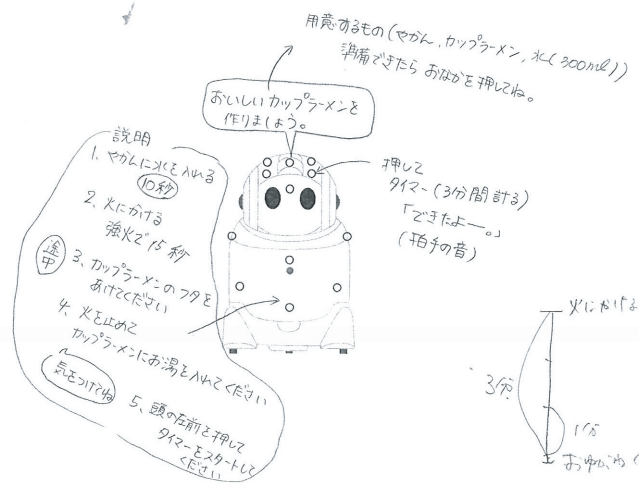 用意するもの(やかん,カップラーメン,水(300ml))
準備できたら おなかを押してね。
おいしいカップラーメンを
作りましょう。
説明
1、やかんに水を入れる
10秒
2、火にかける
強火で15秒
途中
3、カップラーメンのフタを
あけてください
4、火を止めて
カップラーメンにお湯を入れてください
気をつけてね
5、頭の左前を押して
タイマーをスタートして
ください
押して
タイマー(3分間計る)
「できたよー。」
(拍手の音)
火にかける
3分
1分